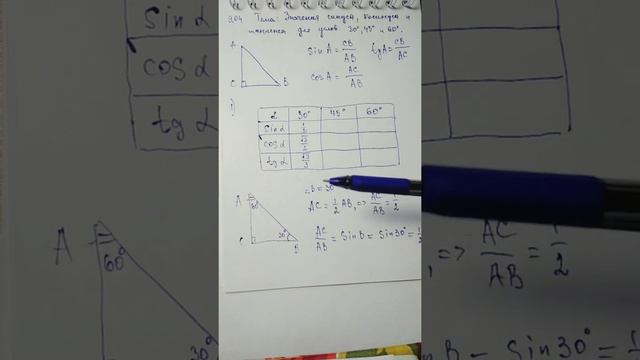 9.04 Тема: Значения синуса, косинуса и
тангенса для углов 30°, 45° и 60°.
A
C
B
sin A = CB/AB
tg A = CB/AC
cos A = AC/AB
1)
α 30° 45° 60°
sin α 1/2
cos α √3/2
tg α √3/3
A
60°
C
30°
B
∠B = 30°
AC = 1/2 AB, => AC/AB = 1/2
AC/AB = Sin B = Sin 30° = 1/2
sin α
cos α
tg α
A
60°
30°
, => AC/AB = 1/2
B = Sin 30° = 1/